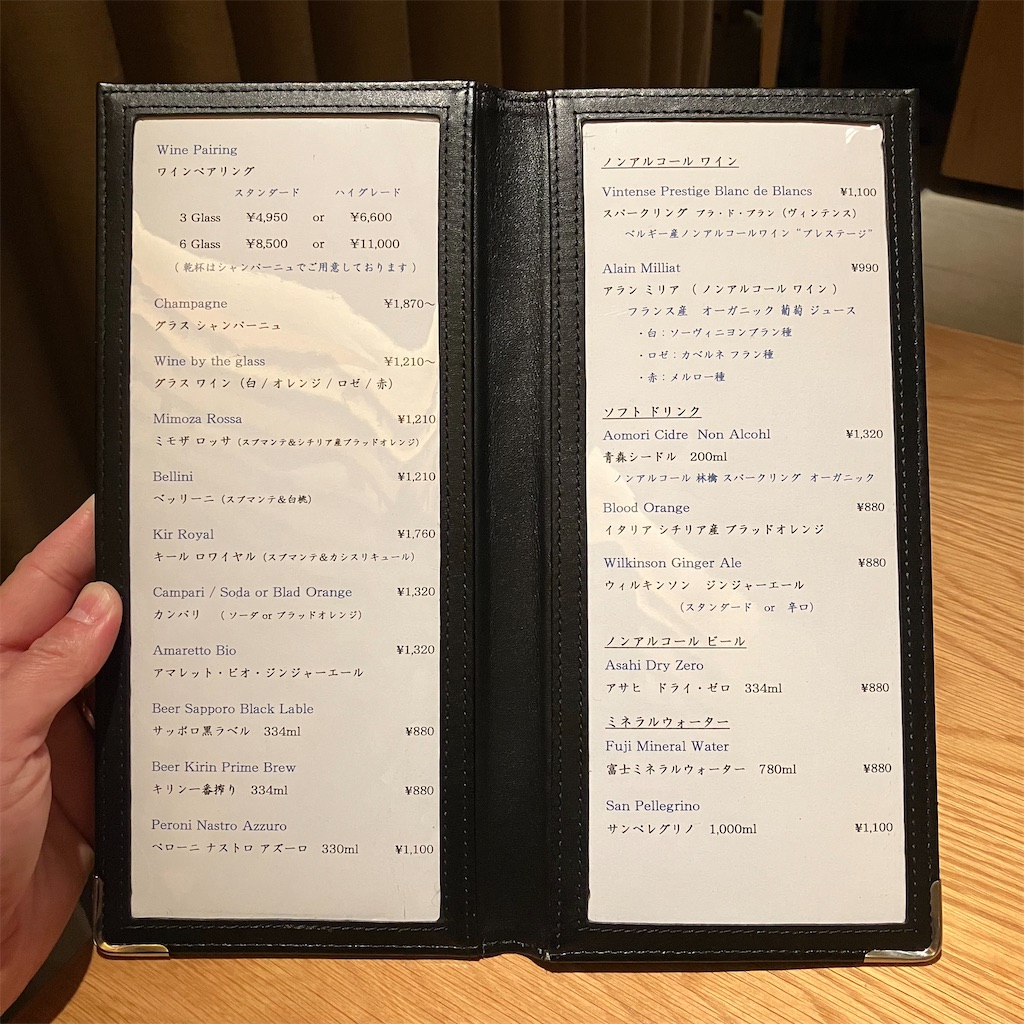 Wine Pairing
ワインペアリング
スタンダード ハイグレード
3 Glass ¥4,950 or ¥6,600
6 Glass ¥8,500 or ¥11,000
( 乾杯はシャンパーニュでご用意しております )
Champagne ¥1,870～
グラス シャンパーニュ
Wine by the glass ¥1,210～
グラス ワイン (白 / オレンジ / ロゼ / 赤)
Mimoza Rossa ¥1,210
ミモザ ロッサ (スプマンテ&シチリア産ブラッドオレンジ)
Bellini ¥1,210
ベッリーニ (スプマンテ&白桃)
Kir Royal ¥1,760
キール ロワイヤル (スプマンテ&カシスリキュール)
Campari / Soda or Blad Orange ¥1,320
カンパリ ( ソーダ or ブラッドオレンジ)
Amaretto Bio ¥1,320
アマレット・ビオ・ジンジャーエール
Beer Sapporo Black Lable
サッポロ黒ラベル 334ml ¥880
Beer Kirin Prime Brew
キリン一番搾り 334ml ¥880
Peroni Nastro Azzuro
ペローニ ナストロ アズーロ 330ml ¥1,100
ノンアルコール ワイン
Vintense Prestige Blanc de Blancs ¥1,100
スパークリング ブラ・ド・ブラン (ヴィンテンス)
ベルギー産ノンアルコールワイン "プレステージ"
Alain Milliat ¥990
アラン ミリア ( ノンアルコール ワイン )
フランス産 オーガニック 葡萄 ジュース
・白：ソーヴィニヨンブラン種
・ロゼ：カベルネ フラン種
・赤：メルロー種
ソフト ドリンク
Aomori Cidre Non Alcohl ¥1,320
青森シードル 200ml
ノンアルコール 林檎 スパークリング オーガニック
Blood Orange ¥880
イタリア シチリア産 ブラッドオレンジ
Wilkinson Ginger Ale ¥880
ウィルキンソン ジンジャーエール
(スタンダード or 辛口)
ノンアルコール ビール
Asahi Dry Zero
アサヒ ドライ・ゼロ 334ml ¥880
ミネラルウォーター
Fuji Mineral Water
富士ミネラルウォーター 780ml ¥880
San Pellegrino
サンペレグリノ 1,000ml ¥1,100